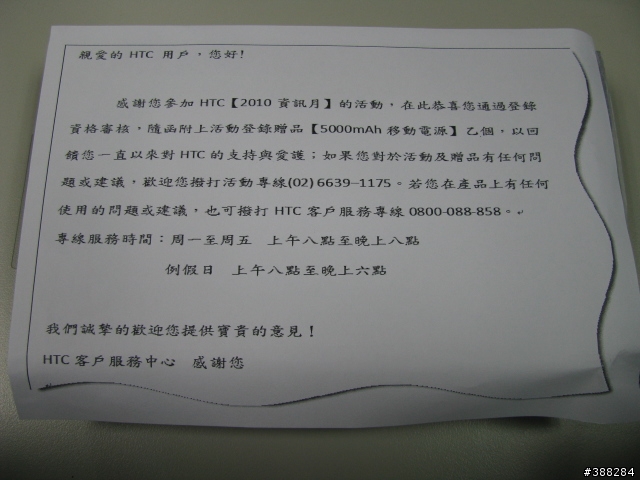 親愛的 HTC 用戶，您好!
感謝您參加 HTC【2010 資訊月】的活動，在此恭喜您通過登錄
資格審核，隨函附上活動登錄贈品【5000mAh 移動電源】乙個，以回
饋您一直以來對 HTC 的支持與愛護；如果您對於活動及贈品有任何問
題或建議，歡迎您撥打活動專線(02) 6639–1175。若您在產品上有任何
使用的問題或建議，也可撥打 HTC 客戶服務專線 0800-088-858。
專線服務時間：周一至周五 上午八點至晚上八點
例假日 上午八點至晚上六點
我們誠摯的歡迎您提供寶貴的意見！
HTC 客戶服務中心 感謝您
#388284